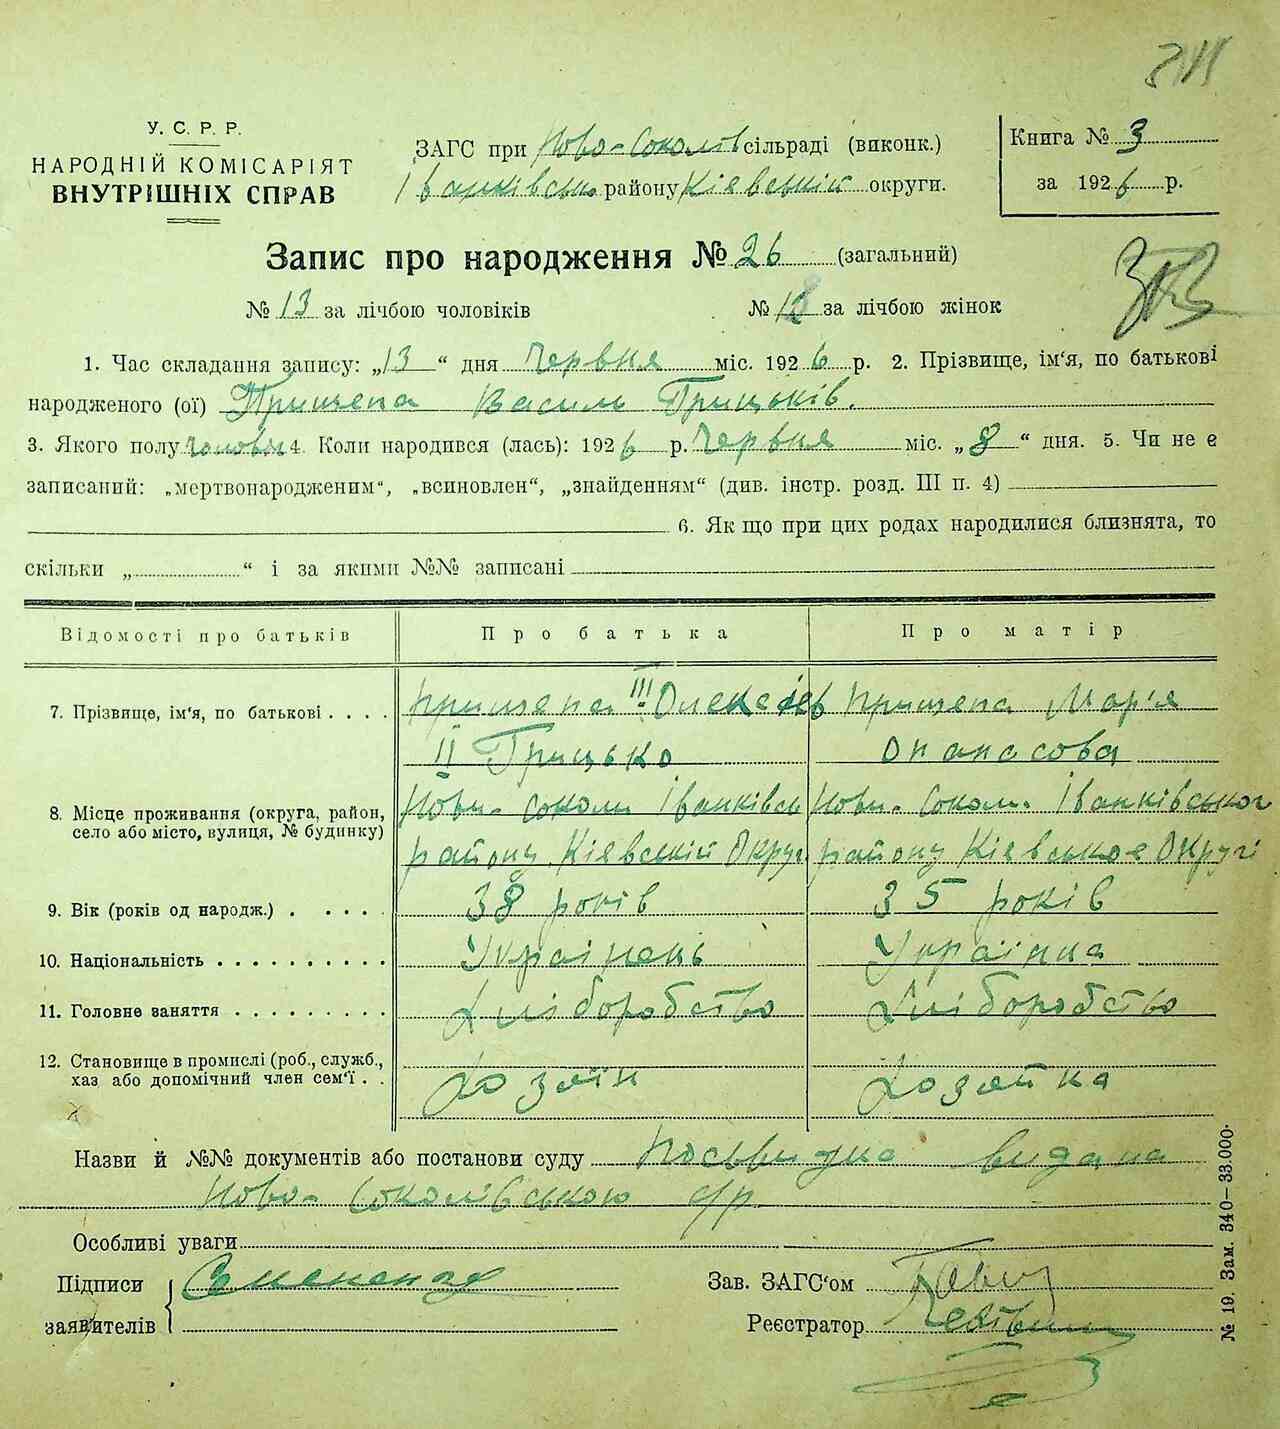 У. С. Р. Р.
НАРОДНІЙ КОМІСАРІЯТ
ВНУТРІШНІХ СПРАВ
ЗАГС при Ново-Соколів сільраді (виконк.)
Іванківськ району Кієвській округи.
Книга № 3
за 1926 р.
Запис про народження № 26 (загальний)
№ 13 за лічбою чоловіків № за лічбою жінок
1. Час складання запису: „13“ дня Червня міс. 1926 р. 2. Прізвище, ім'я, по батькові
народженого (ої) Прищепа Василь Грицьків.
3. Якого полу 4. Коли народився (лась): 1926 р. Червня міс. „8“ дня. 5. Чи не є
записаний: „мертвонародженим“, „всиновлен“, „знайденням“ (див. інстр. розд. III п. 4)
6. Як що при цих родах народилися близнята, то
скільки „ “ і за якими №№ записані
Відомості про батьків Про батька Про матір
7. Прізвище, ім'я, по батькові Прищепа III Олексіев Прищепа Мар'я
II Грицько Опанасова
8. Місце проживання (округа, район, село або місто, вулиця, № будинку) Нови-Соколи Іванківськ Нови-Сокол. Іванківського
району Кієвській Округ району Кієвськое Округі
9. Вік (років од народж.) 38 років 35 років
10. Національність Українець Українка
11. Головне заняття Хліборобство Хліборобство
12. Становище в промислі (роб., служб., хаз. або допомічний член сем'ї Хозяїн Хозяйка
Назви й №№ документів або постанови суду Посьвидка видана
Ново-Соколівською с/р
Особливі уваги
Підписи
заявителів
Зав. ЗАГС'ом
Реєстратор
№ 19. Зам. 340—33.000.